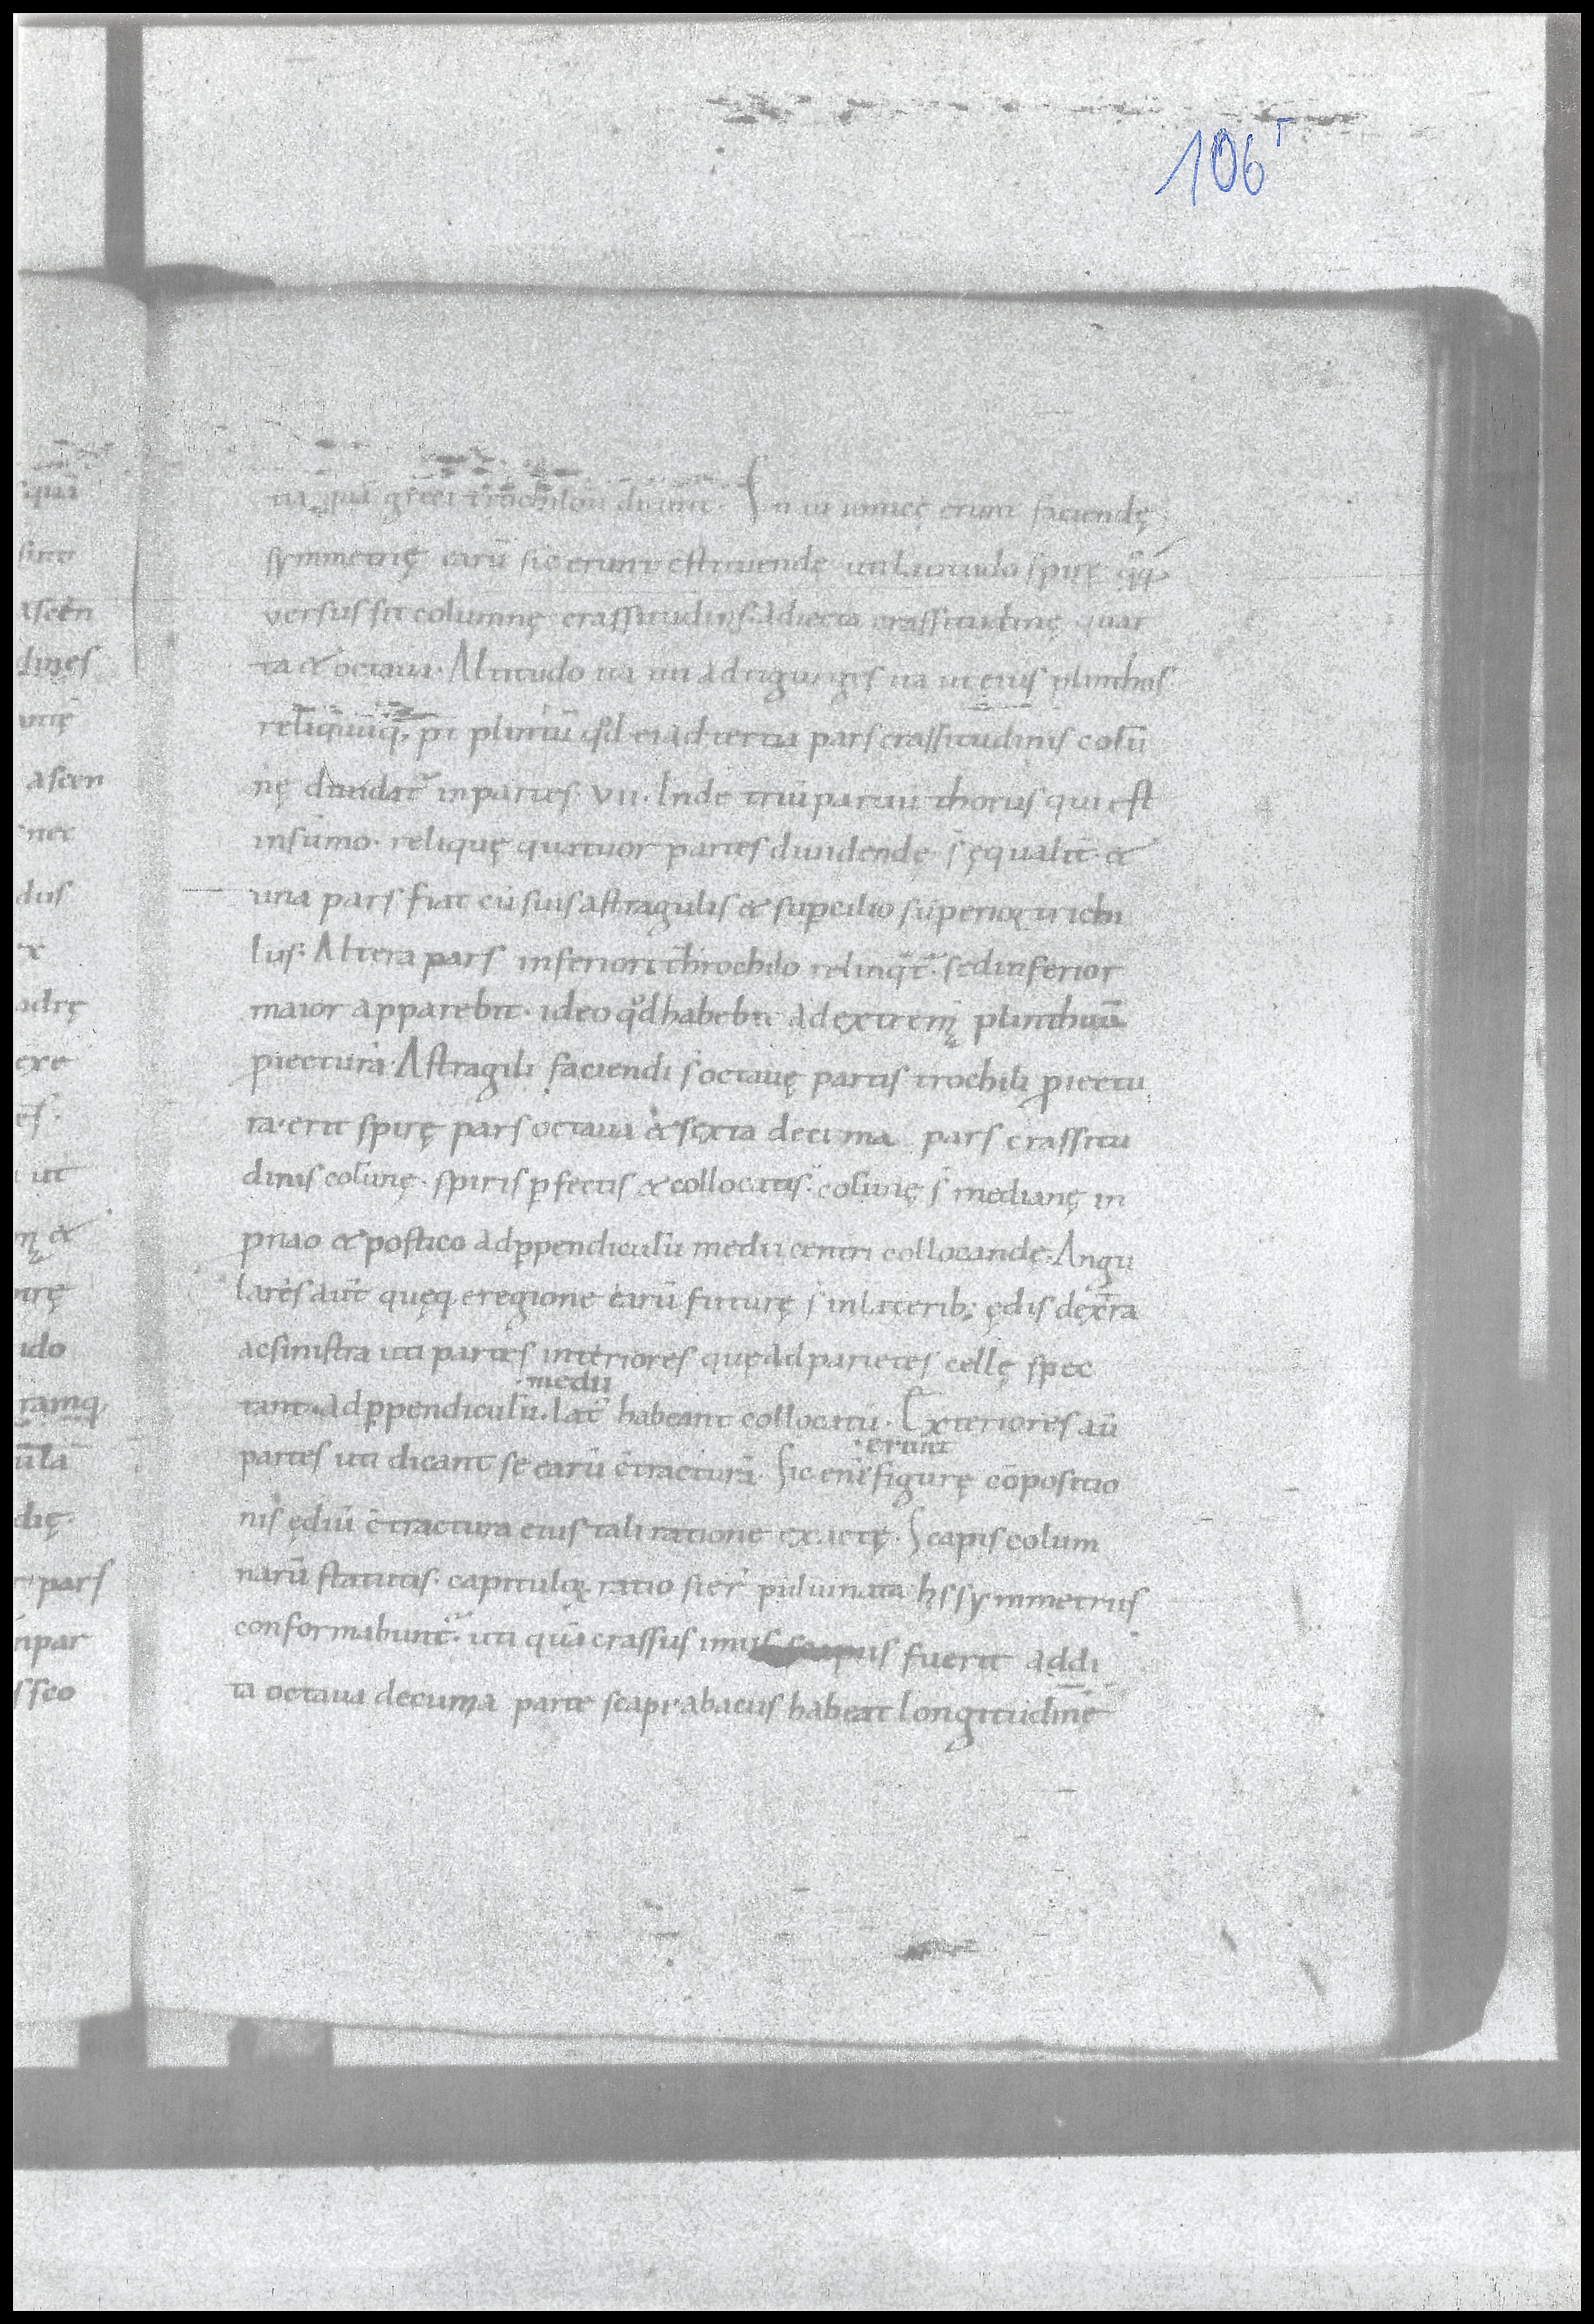 106r
tia quā greci trochilon dicunt. Sin ionicę erunt faciendę
symmetrię earū sic erunt c̄stituendę uti latitudo spirę qq̄
versus sit columnę crassitudinis. Adiecta crassitudinę quar
ta & octaua. Altitudo ita uti ad tigurgis ita ut eius plinthis
reliquūq; pt̄ plintiū qd̄ ei ad tertia pars crassitudinis colū
nę diuidat᷑ in partes. VII. Inde triū partiū thorus qui est
in sūmo. reliquę quatuor partes diuidendę s̄ ęqualit̄. &
una pars fiat cū suis astragulis & sup̄cilio superior trichi
lus. Altera pars inferiori throchilo relinq̄t᷑. sed inferior
maior apparebit. ideo qd̄ habebit ad extremꝝ plinthiuū
p̄iecturā. Astragili faciendi s̄ octauę partis trochili p̄iectu
ra. erit spirę pars octaua & sexta decima pars crassitu
dinis colūnę. spiris p̄fectis & collocatis. colūnę s̄ medianę in
p̄nao & postico ad p̄pendiculū medii centri collocandę. Angu
lares aūt quęq; e regione earū futurę s̄ in laterib; ędis dextra
ac sinistra uti partes interiores quę ad parietes cellę spec
medii
tant. ad p̄pendiculū. lat̄ habeant collocatū. Exteriores aū
erunt
partes uti dicant se earū c̄tracturā. Sic enī figurę cōpositio
nis ędiū c̄tractura eius tali ratione exactę. Scapis colum
narū statutis. capituloꝝ ratio si er̄ puluinata his symmetriis
conformabunt᷑. uti quā crassus imus scapus fuerit addi
ta octaua decuma parte scapi abacus habeat longitudinē
quā
ascen
dines
ascen
nec
dus
x
adrę
exe
es.
ut
&
ido
ramq;
ula
dię.
pars
npar
sseo